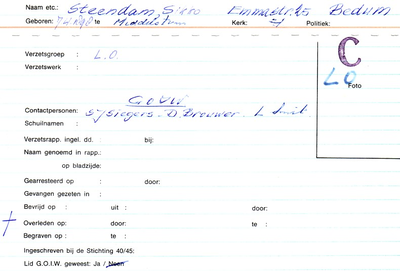 Naam etc.: Steendam, Sikko Emmastr. 25 Bedum
Geboren: te Middelstum Kerk: Politiek:
C
Verzetsgroep : L.O.
Verzetswerk :
LO
Foto
G.O.I.W.
Contactpersonen: Siegers - D. Brouwer - L. Smit
Schuilnaam :
Verzetsrapp. ingel. dd. : bij:
Naam genoemd in rapp.:
op bladzijde:
Gearresteerd op : door:
Gevangen gezeten in :
Bevrijd op : uit : door:
† Overleden op: door: te :
Begraven op : te :
Ingeschreven bij de Stichting 40/45:
Lid G.O.I.W. geweest: Ja / Neen